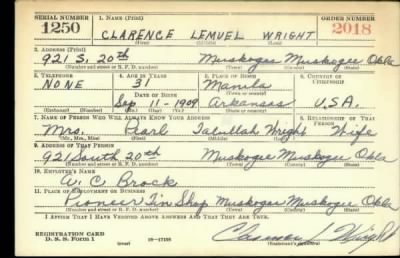 SERIAL NUMBER 1. NAME (Print) ORDER NUMBER
1250 CLARENCE LEMUEL WRIGHT 2018
(First) (Middle) (Last)
2. ADDRESS (Print)
921 S. 20th Muskogee Muskogee Okla
(Number and street or R. F. D. number) (Town) (County) (State)
3. TELEPHONE 4. AGE IN YEARS 5. PLACE OF BIRTH 6. COUNTRY OF CITIZENSHIP
NONE 31 Manila
DATE OF BIRTH (Town or county)
Sep 11-1909 Arkansas U.S.A.
(Exchange) (Number) (Mo.) (Day) (Yr.) (State or country)
7. NAME OF PERSON WHO WILL ALWAYS KNOW YOUR ADDRESS 8. RELATIONSHIP OF THAT PERSON
Mrs. Pearl Wright Wife
(Mr., Mrs., Miss) (First) (Middle) (Last)
9. ADDRESS OF THAT PERSON
921 South 20th Muskogee Muskogee Okla
(Number and street or R. F. D. number) (Town) (County) (State)
10. EMPLOYER'S NAME
W. C. Brock
11. PLACE OF EMPLOYMENT OR BUSINESS
Pioneer Tin Shop Muskogee Muskogee Okla
(Number and street or R. F. D. number) (Town) (County) (State)
I AFFIRM THAT I HAVE VERIFIED ABOVE ANSWERS AND THAT THEY ARE TRUE.
REGISTRATION CARD
D. S. S. Form 1 (over) 16-17105 Clarence L Wright
(Registrant's signature)